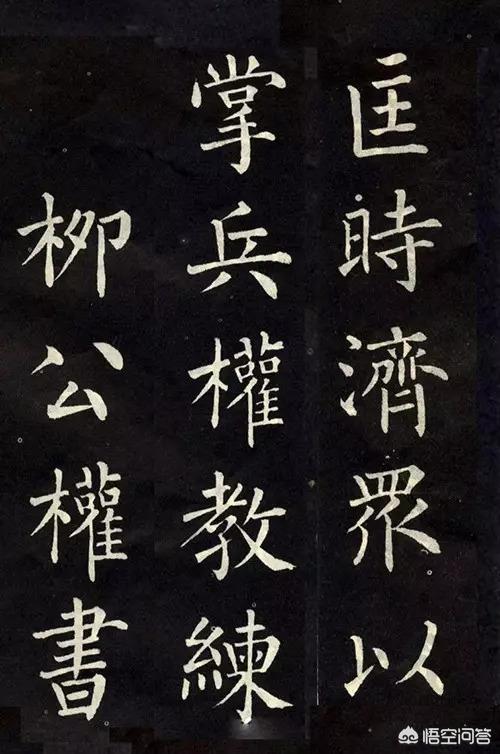 匡時濟眾以
掌兵權教練
柳公權書
悟空问答